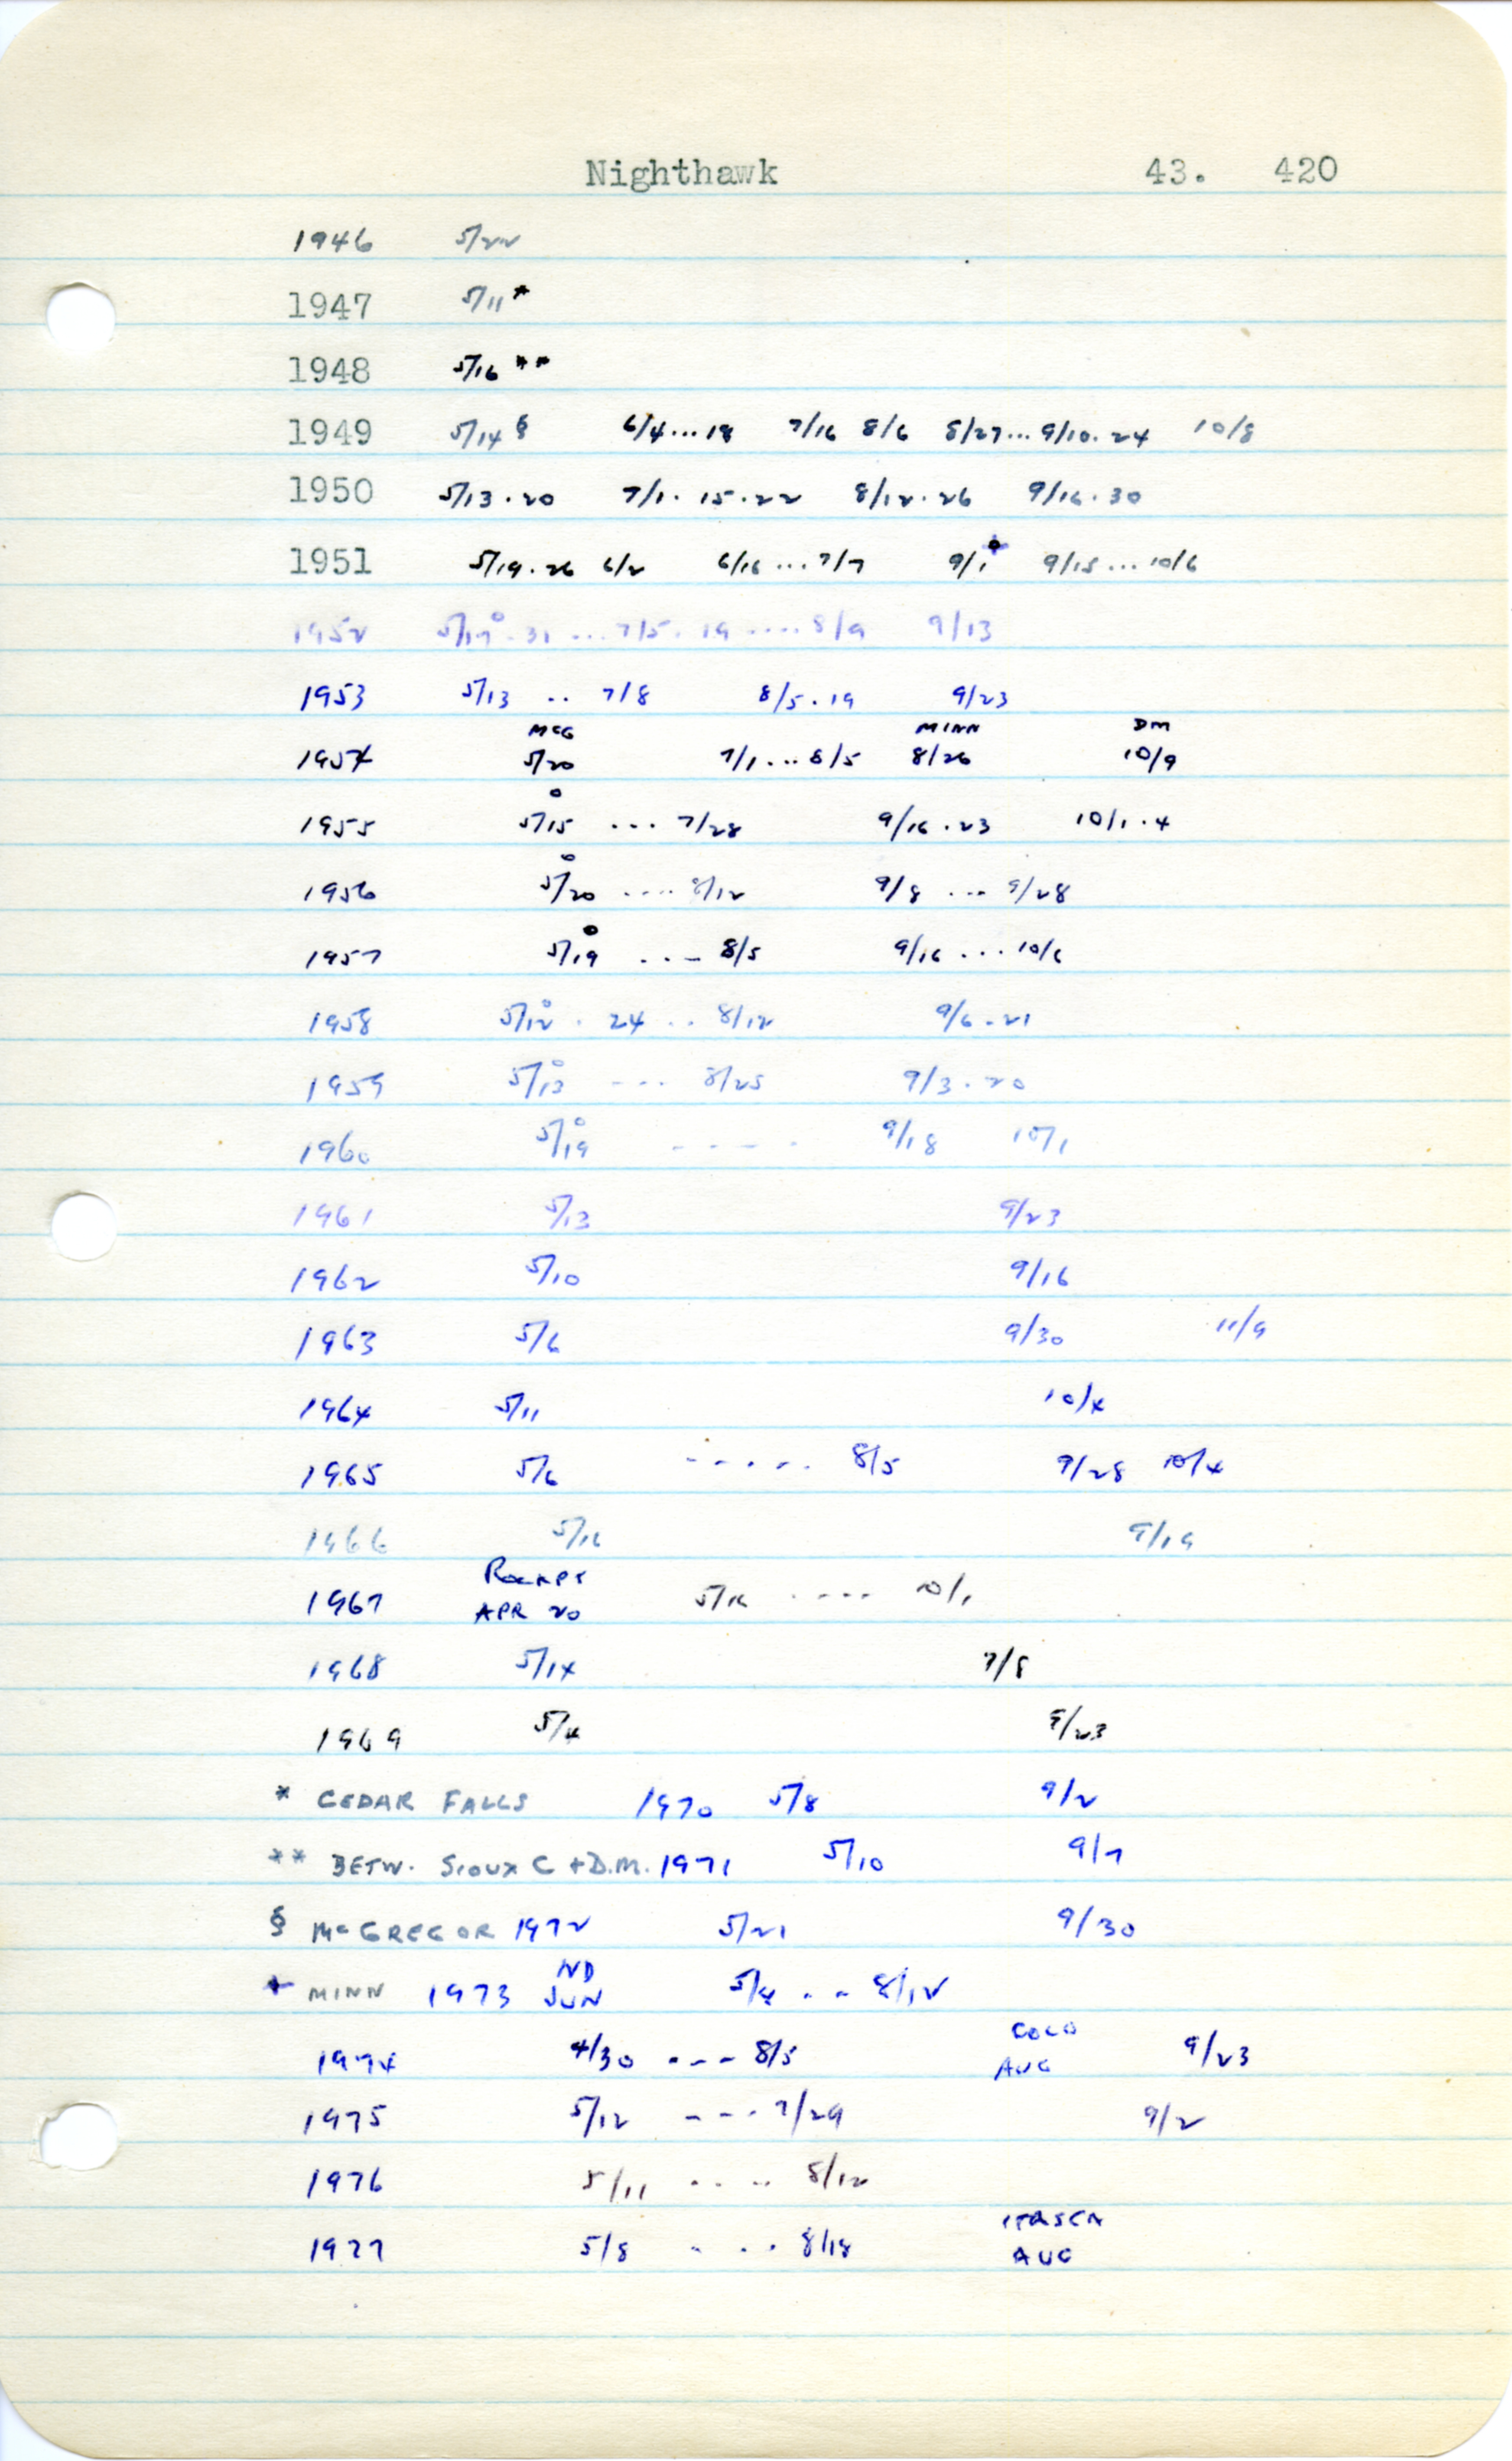 Nighthawk 43. 420
1946 5/22
1947 5/11*
1948 5/16 **
1949 5/14 § 6/4...18 7/16 8/6 8/27... 9/10. 24 10/8
1950 5/13 . 20 7/1. 15. 22 8/12. 26 9/16. 30
1951 5/19. 26 6/2 6/16 ... 7/7 9/1 + 9/15 ... 10/6
1952 5/17° . 31 ... 7/5. 19 .... 8/9 9/13
1953 5/13 .. 7/8 8/5 . 19 9/23
McG MINN DM
1954 5/20 7/1 ... 8/5 8/26 10/9
1955 5/15° ... 7/28 9/16 . 23 10/1 . 4
1956 5/20° .... 8/12 9/8 ... 9/28
1957 5/19° ... 8/5 9/16 ... 10/6
1958 5/12° . 24 .. 8/12 9/6 . 21
1959 5/13° --- 8/25 9/3 . 20
1960 5/19° - - - - . 9/18 10/1
1961 5/13 9/23
1962 5/10 9/16
1963 5/6 9/30 11/9
1964 5/11 10/4
1965 5/6 - . - . . 8/5 9/28 10/4
1966 5/16 9/19
1967 APR 20 5/16 .... 10/1
1968 5/14 7/8
1969 5/4 9/23
* CEDAR FALLS 1970 5/8 9/2
** BETW. SIOUX C + D.M. 1971 5/10 9/7
§ McGREGOR 1972 5/21 9/30
ND
+ MINN 1973 JUN 5/4 . . - 8/12
COLO
1974 4/30 --- 8/5 AUG 9/23
1975 5/12 - - - 7/29 9/2
1976 5/11 . . .. 8/12
ITASCA
1977 5/8 . . . 8/18 AUG